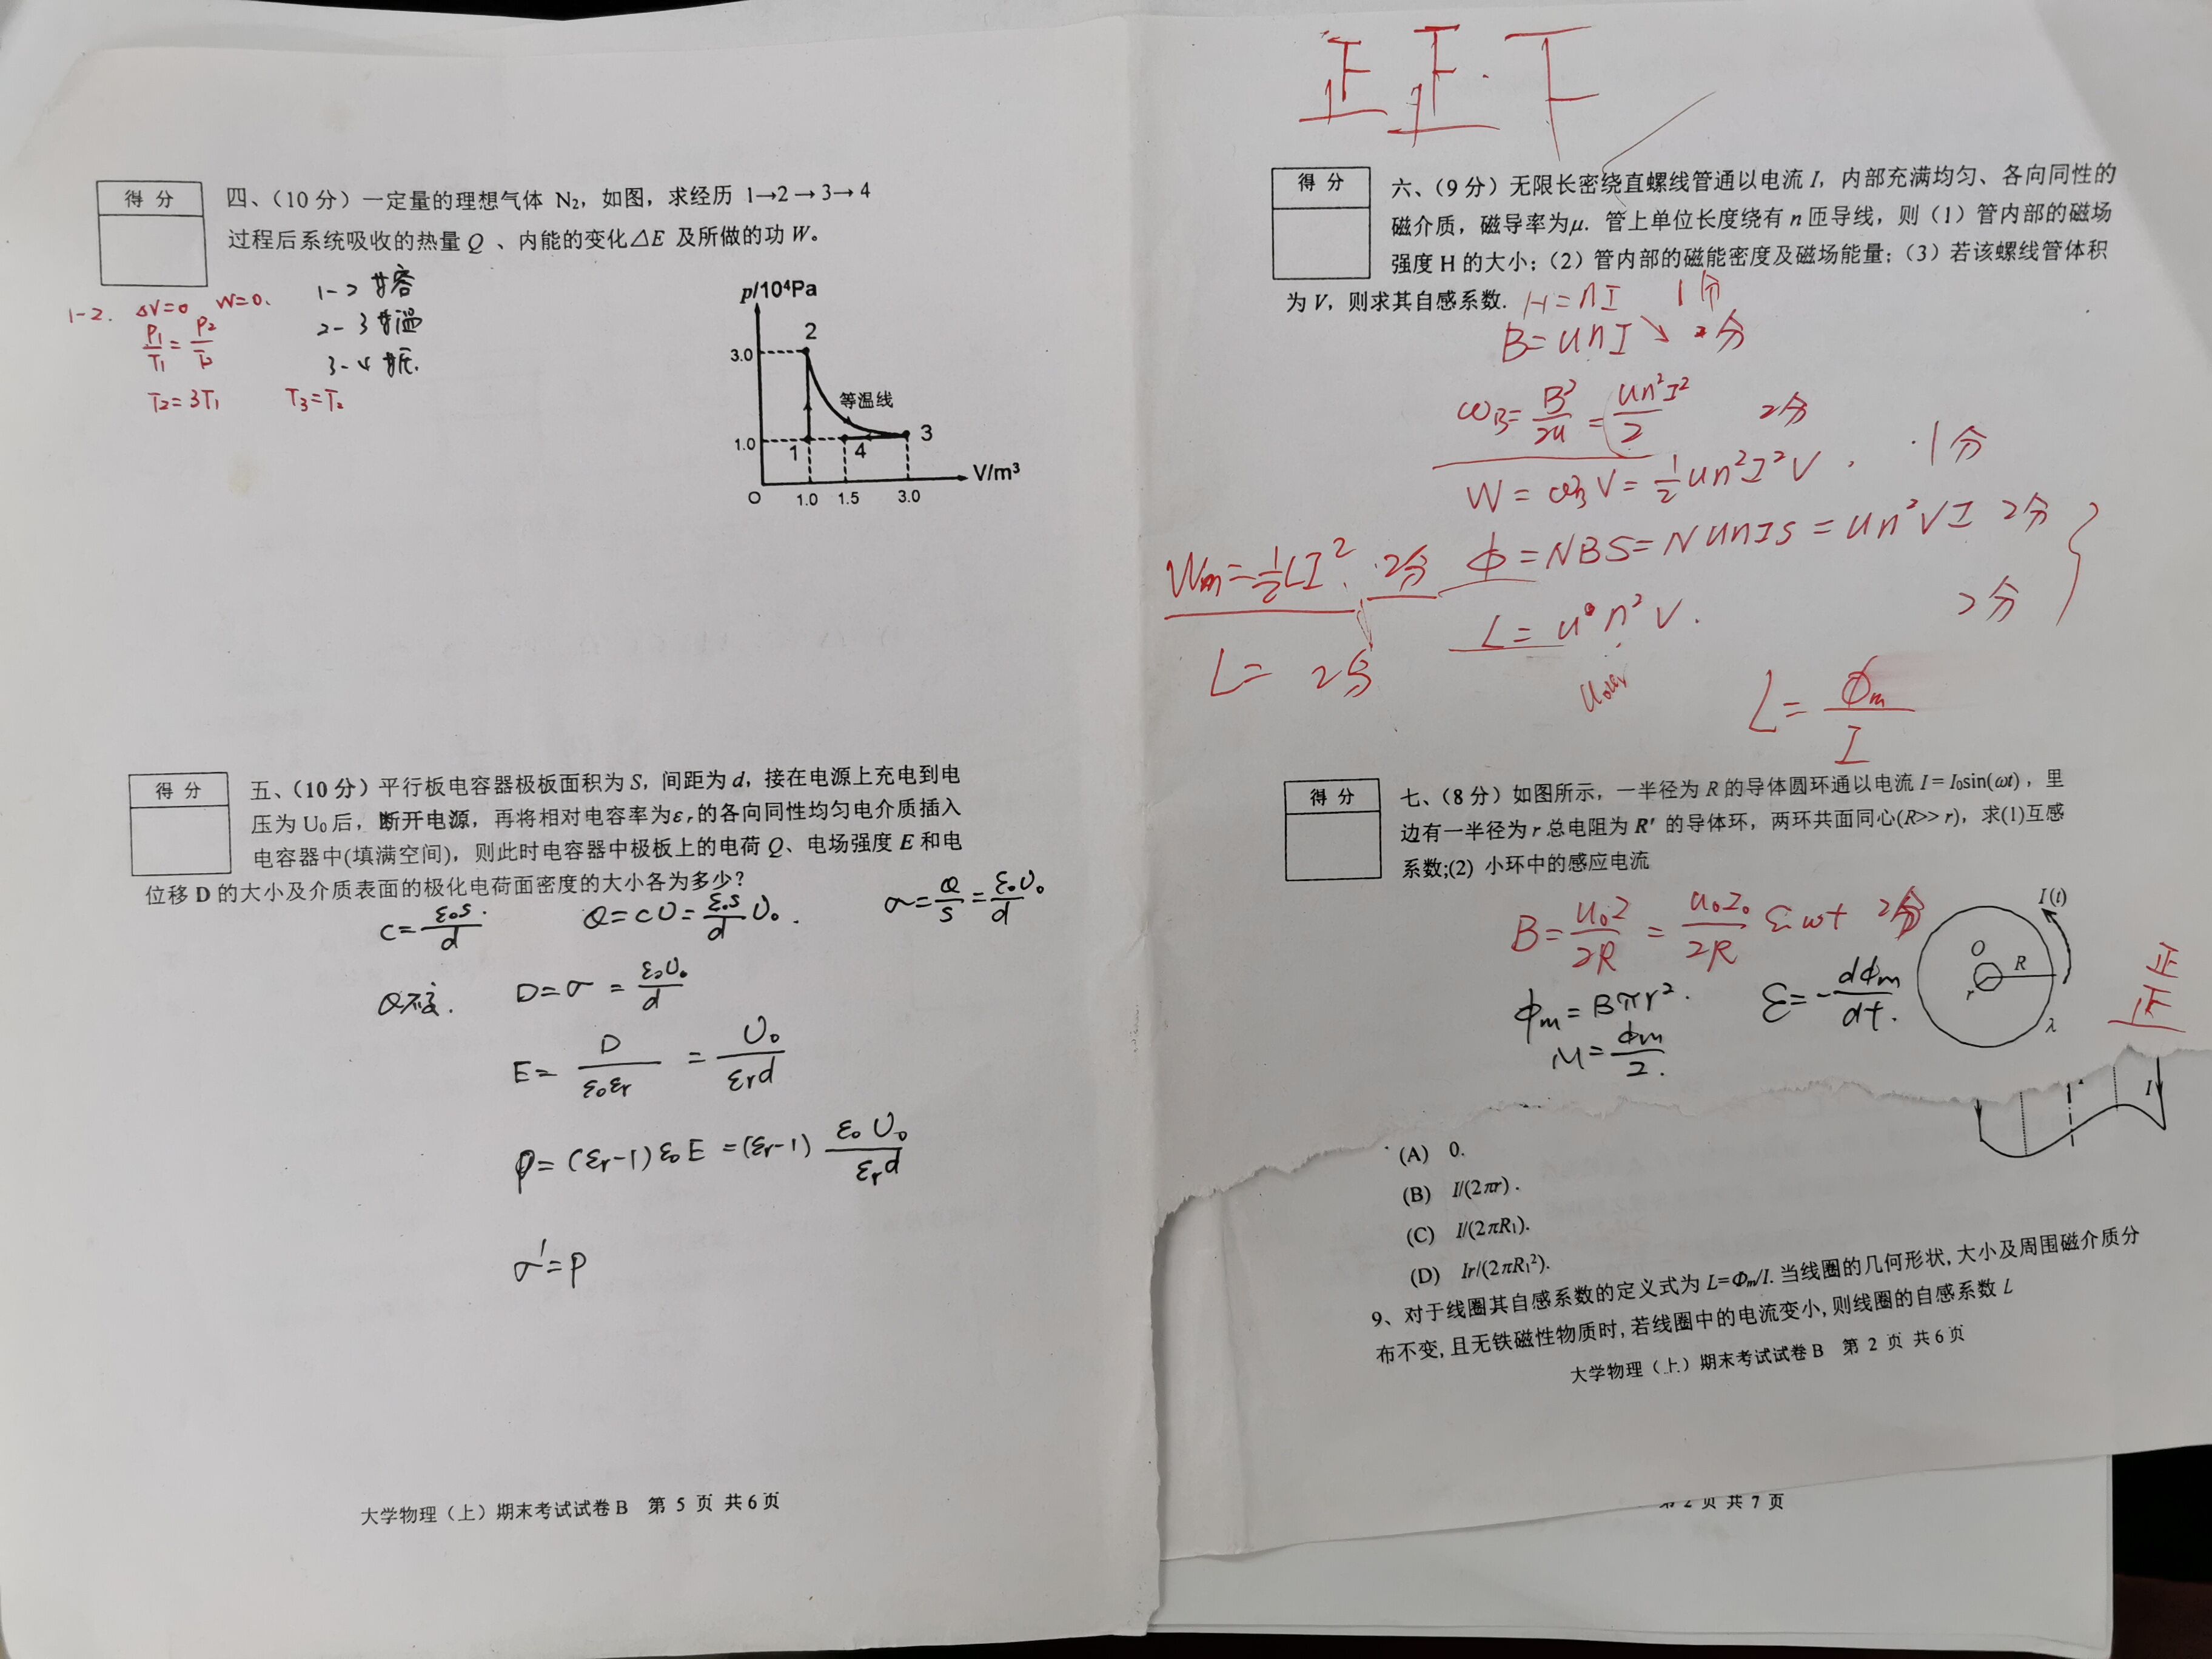 得 分
四、（10 分）一定量的理想气体 N₂，如图，求经历 1→2→3→4
过程后系统吸收的热量 Q 、内能的变化△E 及所做的功 W。
1-2. ΔV=0 W=0.
P₁/T₁=P₂/T₂
T₂=3T₁ T₃=T₂
1-2 等容
2-3 等温
3-4 等压.
p/10⁴Pa
2
3.0
等温线
1.0
1
4
3
V/m³
O 1.0 1.5 3.0
得 分
五、（10 分）平行板电容器极板面积为 S，间距为 d，接在电源上充电到电
压为 U₀ 后，断开电源，再将相对电容率为εᵣ的各向同性均匀电介质插入
电容器中(填满空间)，则此时电容器中极板上的电荷 Q、电场强度 E 和电
位移 D 的大小及介质表面的极化电荷面密度的大小各为多少？
C=ε₀S/d Q=CU=ε₀S/d U₀. σ=Q/S=ε₀U₀/d
Q不变. D=σ=ε₀U₀/d
E=D/ε₀εᵣ=U₀/εᵣd
P=(εᵣ-1)ε₀E=(εᵣ-1)ε₀U₀/εᵣd
σ'=P
大学物理（上）期末考试试卷 B 第 5 页 共 6 页
正 正 下
得 分
六、（9 分）无限长密绕直螺线管通以电流 I，内部充满均匀、各向同性的
磁介质，磁导率为μ. 管上单位长度绕有 n 匝导线，则（1）管内部的磁场
强度 H 的大小；（2）管内部的磁能密度及磁场能量；（3）若该螺线管体积
为 V，则求其自感系数.
H=nI 1分
B=unI 2分
ωB=B²/2u=un²I²/2 2分
W=ωB V=1/2 un²I²V. 1分
Wm=1/2 LI². 2分
Φ=NBS=NunIS=un²VI 2分
L= 2分
L=un²V. 2分
L=Φm/I
得 分
七、（8 分）如图所示，一半径为 R 的导体圆环通以电流 I＝I₀sin(ωt)，里
边有一半径为 r 总电阻为 R′ 的导体环，两环共面同心(R>>r)，求(1)互感
系数;(2) 小环中的感应电流
B=u₀I/2R=u₀I₀/2R Sinωt 2分
Φm=Bπr². ε=-dΦm/dt.
M=Φm/I.
I(t)
O
R
r
λ
正
正
I
(A) 0.
(B) I/(2πr) .
(C) I/(2πR₁).
(D) Ir/(2πR₁²).
9、对于线圈其自感系数的定义式为 L=Φm/I. 当线圈的几何形状, 大小及周围磁介质分
布不变, 且无铁磁性物质时, 若线圈中的电流变小, 则线圈的自感系数 L
大学物理（上）期末考试试卷 B 第 2 页 共 6 页
第 2 页 共 7 页